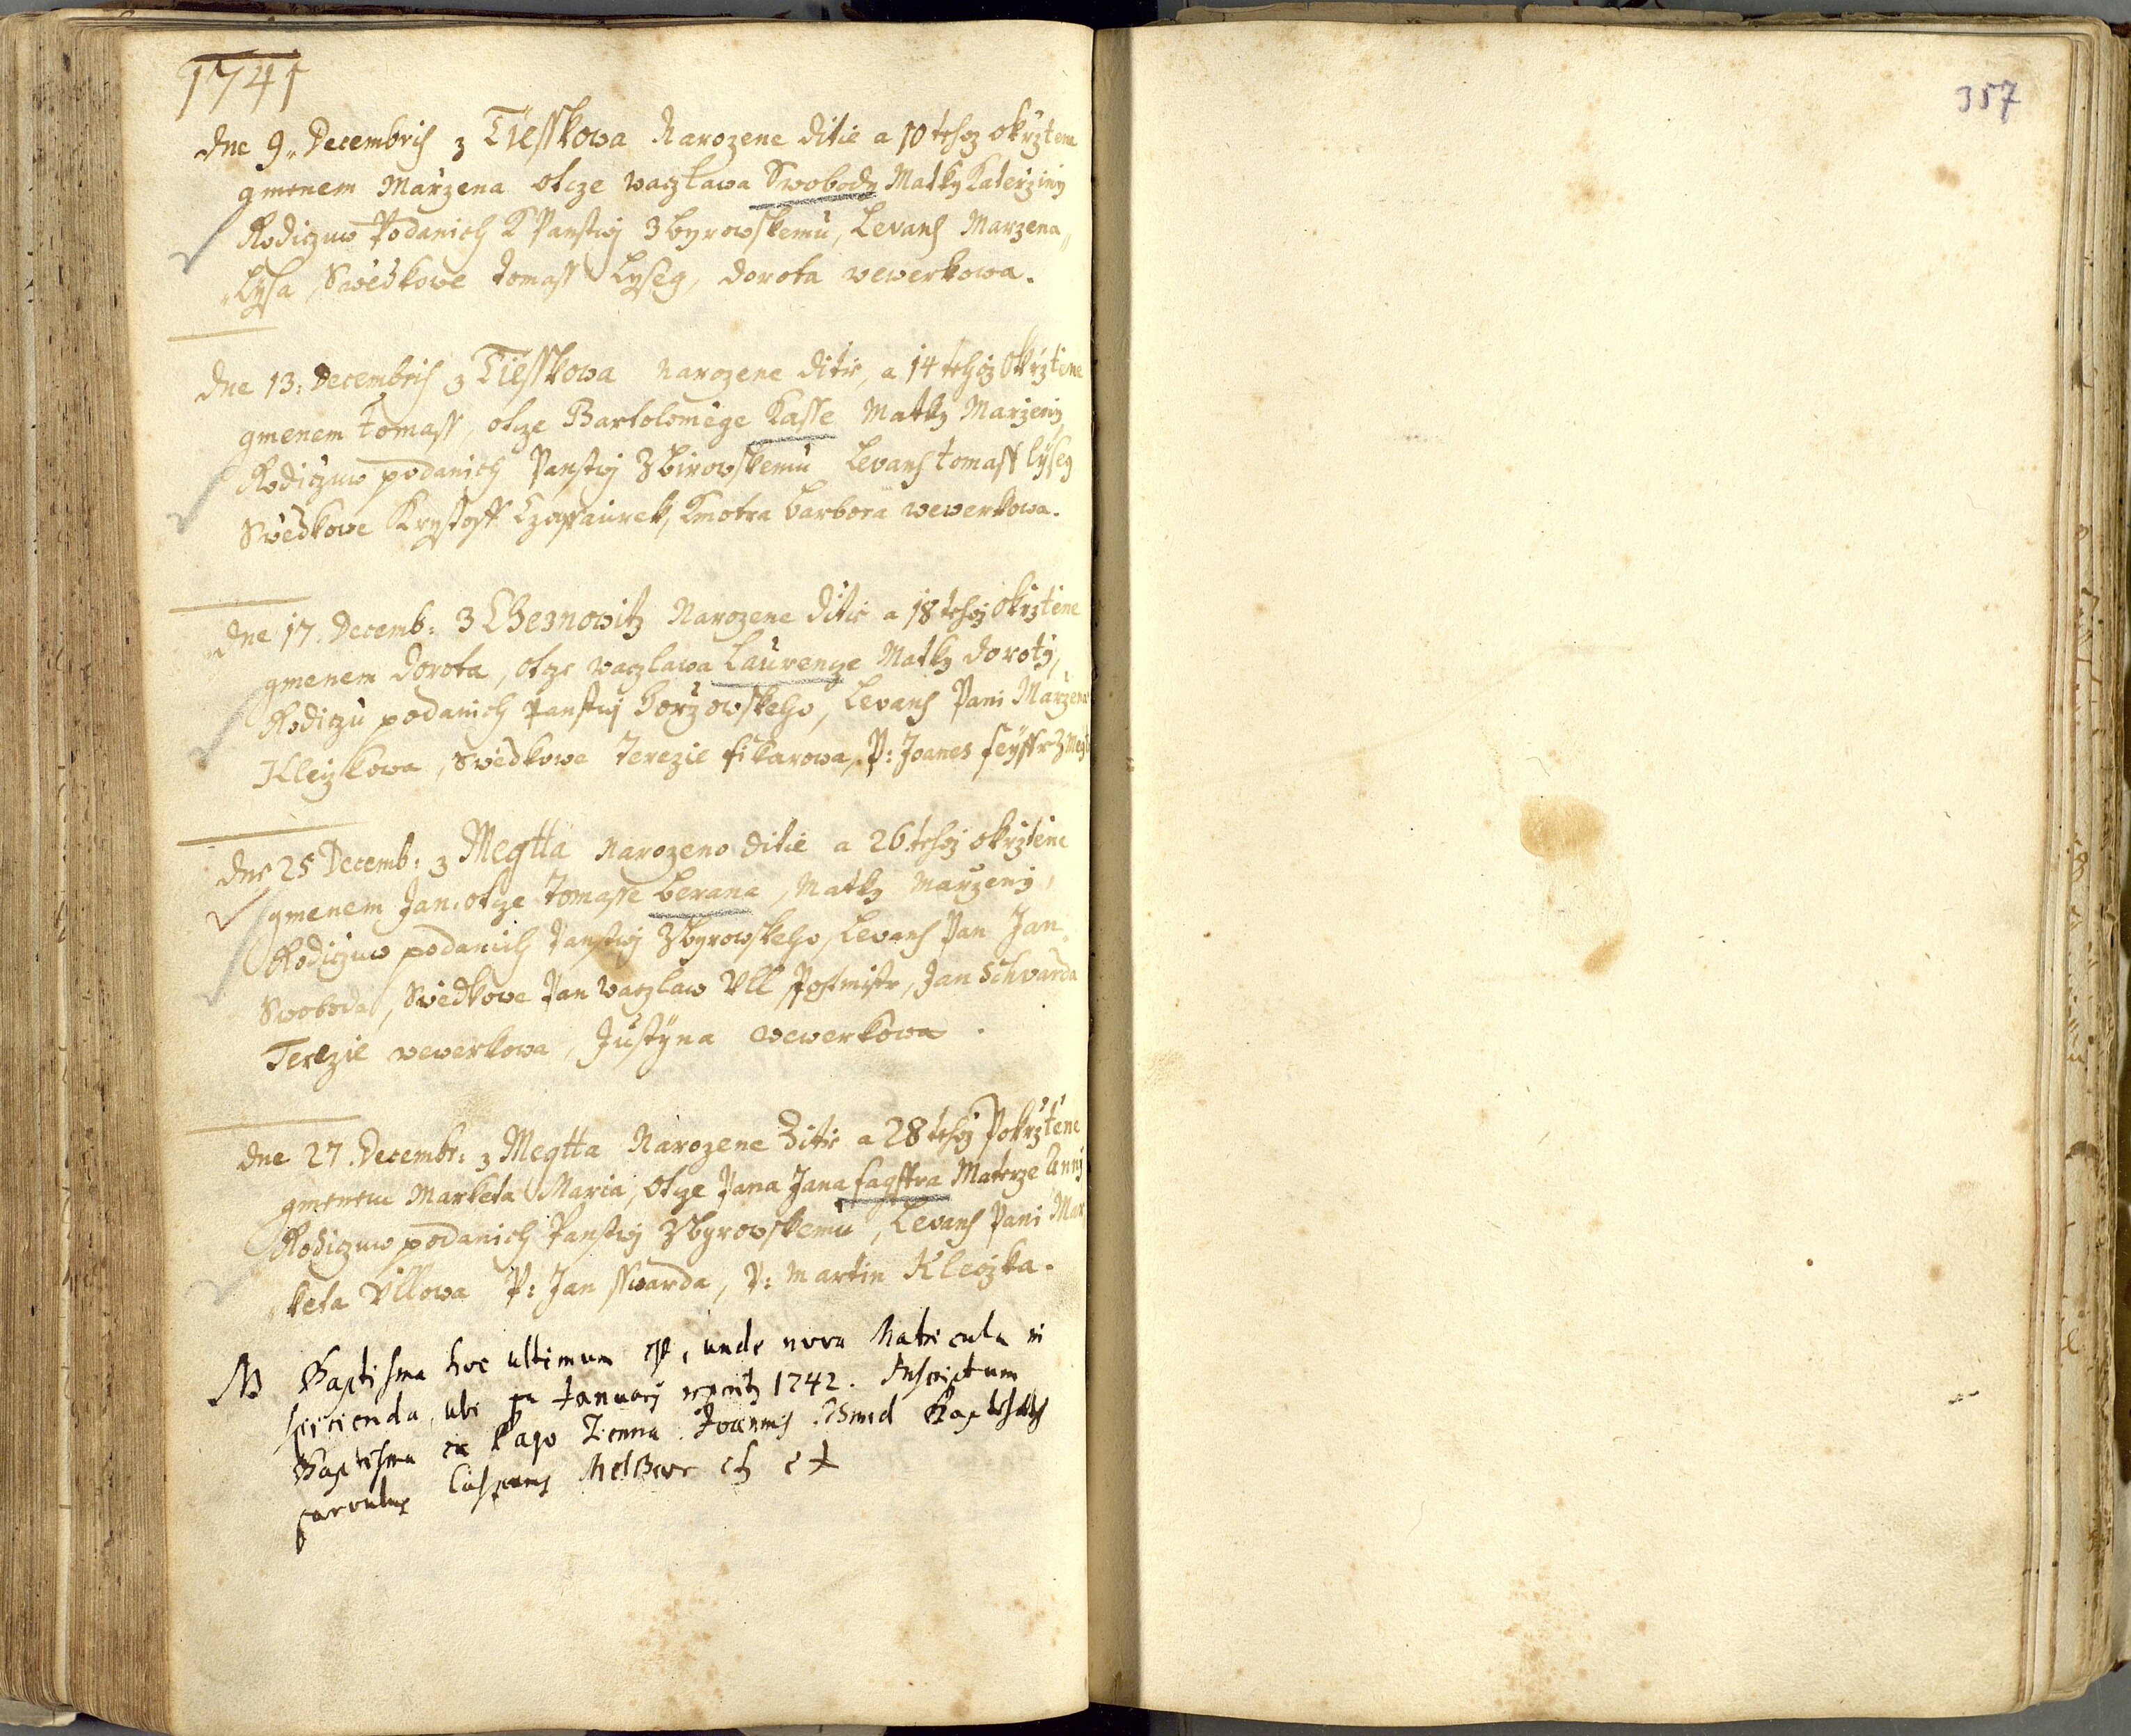 1741
dne 9. Decembris z Tiesskowa Narozene ditie a 10 tehoz okrztene
gmenem Marzena otcze waczlawa Swobody Matky Katerziny
Rodiczuw Podanich K Panstwj Zbyrowskemu, Levans Marzena
Lysa, Swědkowe Tomass Lyseg, Dorota wewerkowa.
dne 13. Decembris z Tiesskowa Narozene ditie, a 14 tehoz Okrztene
gmenem Tomass, otcze Bartolomėge Kasse Matky Marzeny
Rodiczuw podanich Panstwj Zbirowskemu Levans Tomass Lyseg
Swědkowe Krystoff Kmotra Barbora wewerkowa.
dne 17. Decemb: z Narozene ditie a 18 tehoz Okrztene
gmenem Dorota, otcze waczlawa Laurencze Matky Doroty,
Rodiczu podanich Panstwj Horzowskeho, Levans Pani Marzena
Kleczkowa, Swědkowe Terezie fikarowa, P: Joanes
dne 25 Decemb: z Megtta Narozeno ditie a 26 tehoz okrztene
gmenem Jan. otcze Tomasse Berana, Matky Marzeny,
Rodiczuw podanich Panstwj Zbyrowskeho, Levans Pan Jan
Swoboda, Swědkowe Pan waczlaw Ull Postmistr, Jan Schvarda
Terezie wewerkowa, Justyna wewerkowa.
dne 27. Decembr: z Megtta Narozene Ditie a 28 tehoz Pokrztene
gmenem Marketa Maria, otcze Pana Jana Materze Anny
Rodiczuw podanich Panstwj Zbyrowskemu, Levans Pani Mar
keta Ullowa P: Jan sswarda, P: Martin Kleczka.
NB Baptisma hoc ultimum est, unde nova Matricula in
spicienda, ubi Januarij 1742. Inscriptum
Baptisma ex Pago Joannis
parvulus et
357